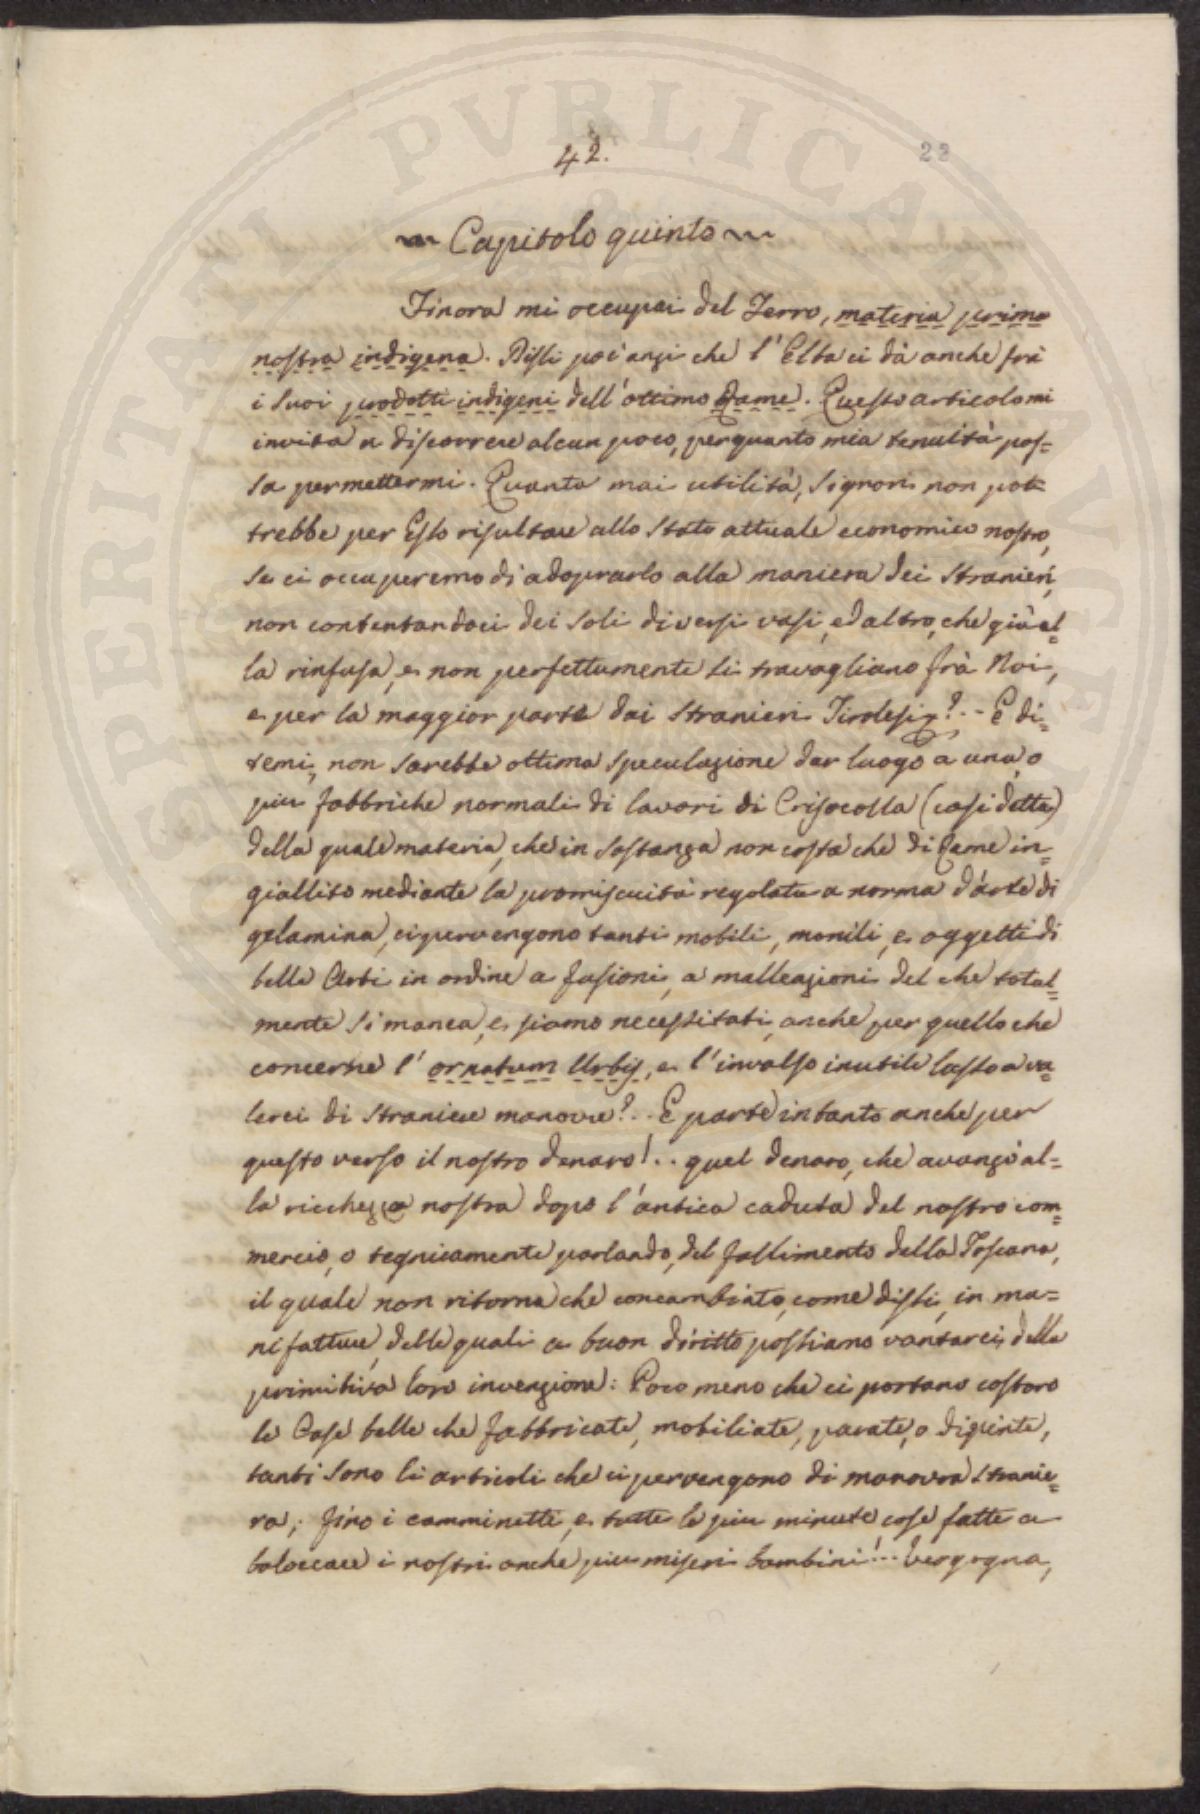 42.
22
Capitolo quinto
Finora mi occupai del Ferro, materia prima
nostra indigena. Dissi poi anzi che l'Elba ci dà anche frà
i suoi prodotti indigeni dell'ottimo Rame. Questo articolo mi
invita a discorrere alcun poco, per quanto mia tenuità pos=
sa permettermi. Quanta mai utilità, Signori non pot
trebbe per Esso risultare allo stato attuale economico nostro,
se ci occuperemo di adoprarlo alla maniera dei Stranieri,
non contentandoci dei soli diversi vasi, ed altro, che già al=
la rinfusa, e non perfettamente si travagliano frà Noi,
e per la maggior parte dai stranieri Tirolesi?... E di=
temi, non sarebbe ottima speculazione dar luogo a una, o
piu fabbriche normali di lavori di Crisocolla (così detta)
della quale materia, che in sostanza non costa che di Rame in=
giallito mediante la promiscuità regolata a norma d'arte di
gelamina, ci pervengono tanti mobili, monili, e oggetti di
belle Arti in ordine a fusioni, a malleazioni del che total=
mente si manca, e siamo necessitati, anche per quello che
concerne l'ornatum Urbis, e l'invalso inutile lusso a va=
lerci di straniere manovre?.. E parte intanto anche per
questo verso il nostro denaro!.. quel denaro, che avanzò al=
la ricchezza nostra dopo l'antica caduta del nostro com=
mercio, o tegnicamente parlando, del fallimento della Toscana,
il quale non ritorna che concambiato, come dissi, in ma=
nifatture, delle quali a buon diritto possiamo vantarci della
primitiva loro invenzione: Poco meno che ci portano costoro
le Case belle che fabbricate, mobiliate, parate, o dipinte,
tanti sono li articoli che ci pervengono di manovra stranie=
ra; fino i camminetti, e tutte le piu minute cose fatte a
baloccare i nostri anche piu miseri bambini!... Vergogna,
PERITATI PVBLICAE